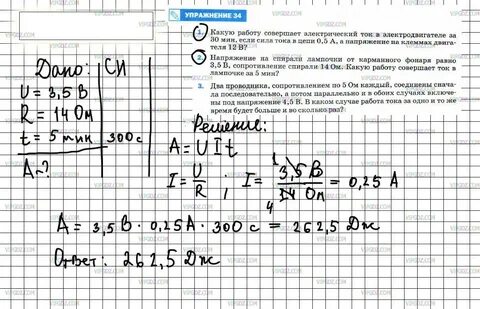 УПРАЖНЕНИЕ 34
1. Какую работу совершает электрический ток в электродвигателе за
30 мин, если сила тока в цепи 0,5 А, а напряжение на клеммах двига-
теля 12 В?
2. Напряжение на спирали лампочки от карманного фонаря равно
3,5 В, сопротивление спирали 14 Ом. Какую работу совершает ток в
лампочке за 5 мин?
3. Два проводника, сопротивлением по 5 Ом каждый, соединены снача-
ла последовательно, а потом параллельно и в обоих случаях включе-
ны под напряжение 4,5 В. В каком случае работа тока за одно и то же
время будет больше и во сколько раз?
Дано: СИ
U = 3,5 В
R = 14 Ом
t = 5 мин 300 с
A - ?
Решение:
A = U I t
I = U/R ; I = 3,5 В / 14 Ом = 0,25 А
1
4
A = 3,5 В · 0,25 А · 300 с = 262,5 Дж
Ответ: 262,5 Дж